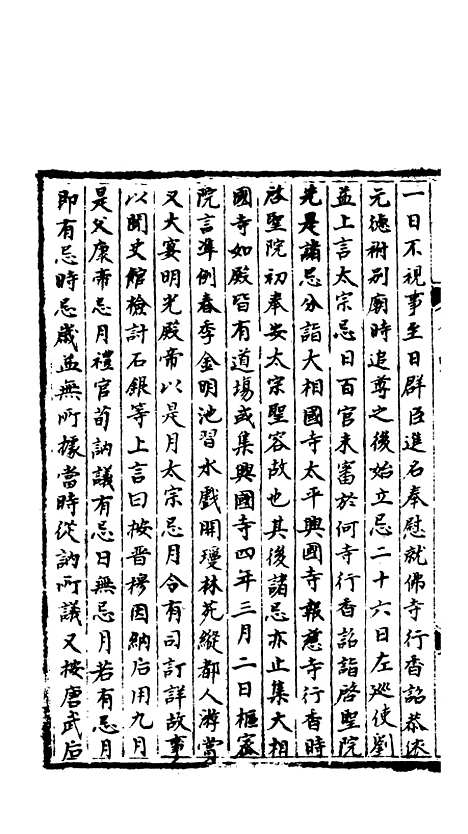 一日不視事至日群臣進名奉慰就佛寺行香詔恭依
元德祔别廟時追尊之後始立忌二十六日左巡使劉
益上言太宗忌日百官未審於何寺行香詔詣啓聖院
先是諸忌分詣大相國寺太平興國寺報慈寺行香時
啓聖院初奉安太宗聖容故也其後諸忌亦止集大相
國寺如殿皆有道場或集興國寺四年三月二日樞密
院言準例春季金明池習水戲開瓊林苑縱都人游賞
又大宴明光殿帝以是月太宗忌月令有司訂詳故事
以聞史館檢討石銀等上言曰按晋穆因納后用九月
是父康帝忌月禮官荀訥議有忌日無忌月若有忌月
即有忌時忌歲益無所據當時從訥所議又按唐武后